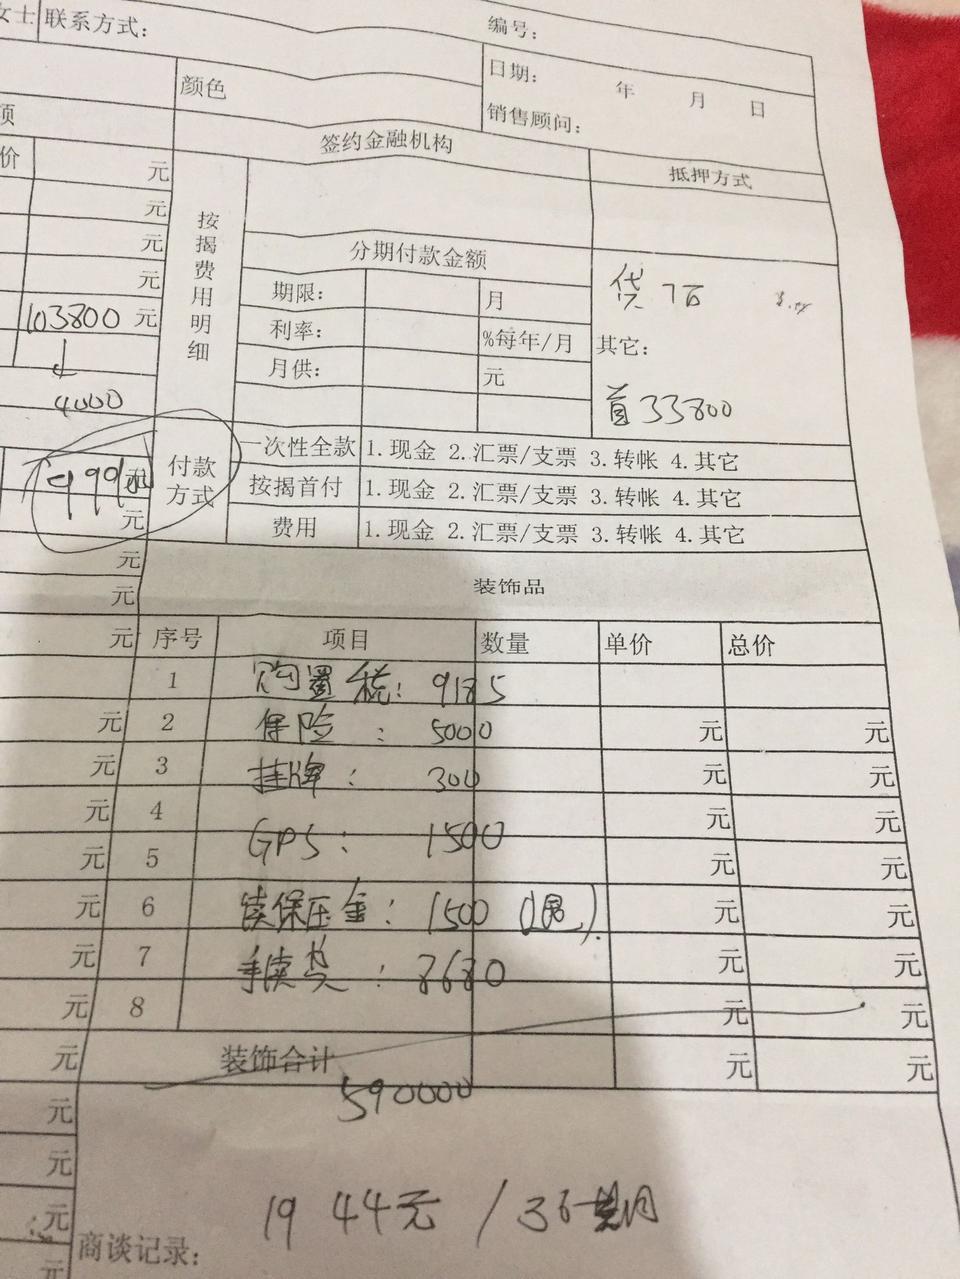 女士 联系方式: 编号:
颜色 日期: 年 月 日
销售顾问:
项 签约金融机构 抵押方式
价 元
元
元
元
按揭费用明细
分期付款金额
期限: 月
利率: %每年/月
月供: 元
贷 7万
其它:
首 33800
103800 元
4000
付款方式
一次性全款 1.现金 2.汇票/支票 3.转帐 4.其它
按揭首付 1.现金 2.汇票/支票 3.转帐 4.其它
费用 1.现金 2.汇票/支票 3.转帐 4.其它
元
元
元
装饰品
元 序号 项目 数量 单价 总价
1 购置税: 9185
元 2 保险: 5000 元 元
元 3 挂牌: 300 元 元
元 4 GPS: 1500 元 元
元 5 元 元
元 6 续保压金: 1500 (退) 元 元
元 7 手续费: 8680 元 元
元 8 元 元
元 装饰合计 元 元
590000
元
元
1944元/36期
元
商谈记录:
元